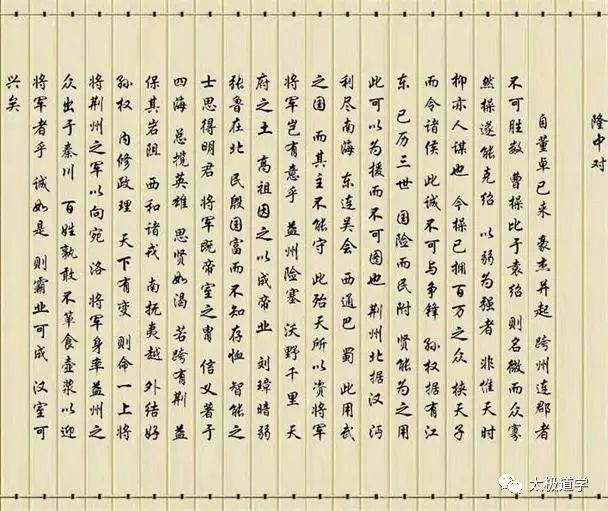 隆中对
自董卓已来 豪杰并起 跨州连郡者
不可胜数 曹操比于袁绍 则名微而众寡
然操遂能克绍 以弱为强者 非惟天时
抑亦人谋也 今操已拥百万之众 挟天子
而令诸侯 此诚不可与争锋 孙权据有江
东 已历三世 国险而民附 贤能为之用
此可以为援而不可图也 荆州北据汉 沔
利尽南海 东连吴会 西通巴 蜀 此用武
之国 而其主不能守 此殆天所以资将军
将军岂有意乎 益州险塞 沃野千里 天
府之土 高祖因之以成帝业 刘璋暗弱
张鲁在北 民殷国富而不知存恤 智能之
士思得明君 将军既帝室之胄 信义著于
四海 总揽英雄 思贤如渴 若跨有荆 益
保其岩阻 西和诸戎 南抚夷越 外结好
孙权 内修政理 天下有变 则命一上将
将荆州之军以向宛 洛 将军身率益州之
众出于秦川 百姓孰敢不箪食壶浆以迎
将军者乎 诚如是 则霸业可成 汉室可
兴矣
太极道学